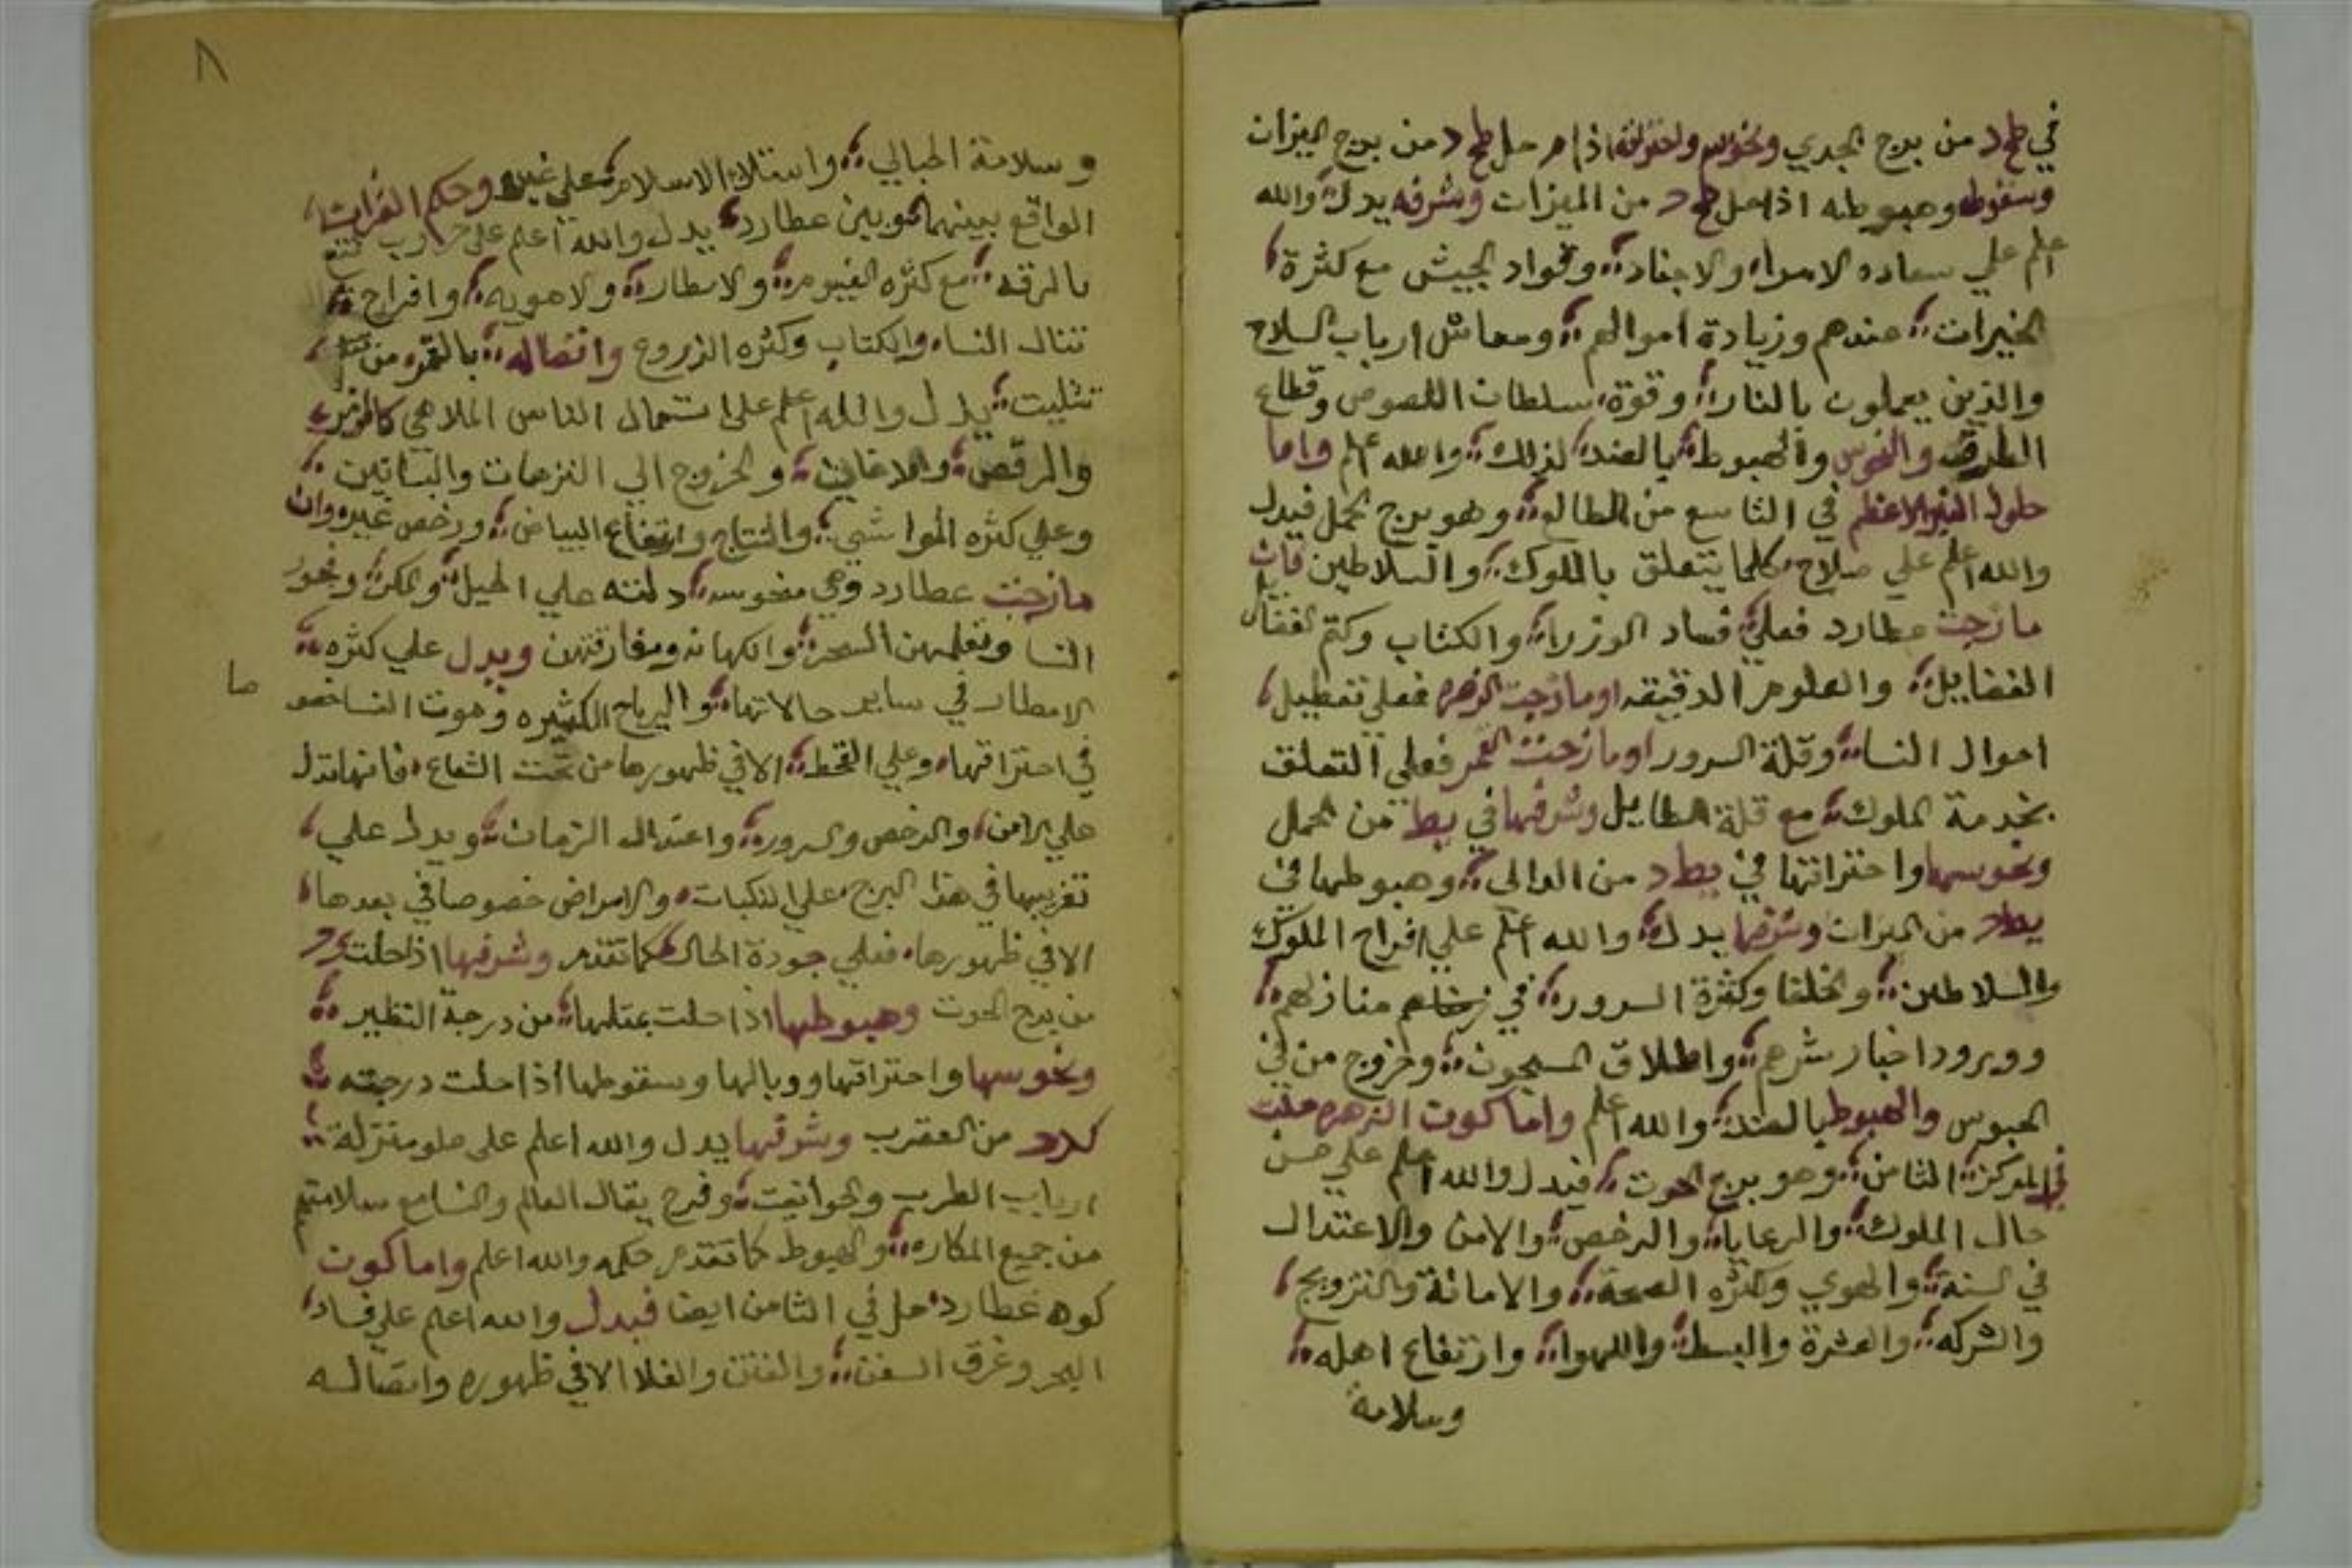 في طح د من برج الجدي ونحوسه واحتراقه اذا حل طح د من برج الميزان
وسقوطه وهبوطه اذا حل د من الميزان وشرفه يدل والله
اعلم علي سعاده الامراء والاجناد وقواد الجيش مع كثرة
الخيرات عندهم وزيادة اموالهم ومعاش ارباب السلاح
والذين يعملون بالنار وقوة سلطان اللصوص وقطاع
الطرق والنحوس والهبوط بالضد لذلك والله اعلم واما
حلول النير الاعظم في التاسع من الطالع وهو برج الحمل فيدل
والله اعلم علي صلاح كلما يتعلق بالملوك والسلاطين فان
مازجت عطارد فعلي فساد الوزراء والكتاب وكتم
الفضايل والعلوم الدقيقه او مازجت الزهره فعلي تعطيل
احوال النساء وقلة السرور او مازجت القمر فعلي التعلق
بخدمة الملوك مع قلة الطايل وشرفها في يط من الحمل
ونحوسها واحتراقها في يط د من الدالي وهبوطها في
يط د من الميزان وشرفها يدل والله اعلم علي افراح الملوك
والسلاطين والخلفا وكثرة السرور في منازلهم
وورود اخبار شرهم واطلاق المسجون وخروج من في
الحبوس والهبوط بالضد والله اعلم واما كون الزهره حلت
في المركز الثامن وهو برج الحوت فيدل والله اعلم علي حسن
حال الملوك والرعايا والرخص والامن والاعتدال
في السنة والهوي وكثره الصحة والامانة والتزويج
والشركه والعشرة والبسط واللهوا وارتفاع اهله
وسلامة
٨
وسلامة الحبالي واستلاء الاسلام علي غيره وحكم القران
الواقع بينهما وبين عطارد يدل والله اعلم علي
بالرقه مع كثره الغيوم والامطار والاهويه وافراح
تنال النساء والكتاب وكثره الزروع واتصاله بالقمر من
تثليت يدل والله اعلم علي استعمال الناس الملاهي كالزمر
والرقص والاغاني والخروج الي النزهات والبساتين
وعلي كثره المواشي والنتاج وارتفاع البياض ورخص غيره وان
مازجت عطارد وهي منحوسه دلته علي الحيل والمكر وفجور
النسا وتعلمهن السحر والكهانه ومفارقتهن ويدل علي كثره
الامطار في ساير حالاتها والرياح الكثيره وموت النسا خصو
صا
في احتراقها وعلي القحط الا في ظهورها من تحت الشعاع فانها تدل
علي الامن والرخص والسرور واعتدال الزمان ويدل علي
تغريبها في هذا البرج علي النكبات والامراض خصوصا في بعدها
الا في ظهورها فعلي جودة الحال كما تقدم وشرفها اذا حلت
من برج الحوت وهبوطها اذا حلت بمثلها من درجة النظير
ونحوسها واحتراقها ووبالها وسقوطها اذا حلت درجته
من العقرب وشرفها يدل والله اعلم علي علو منزلة
ارباب الطرب والحوانيت وفرح يقال العالم والنسا مع سلامتهم
من جميع المكاره والهبوط كما تقدم حكمه والله اعلم واما كون
كوه عطارد حل في الثامن ايضا فيدل والله اعلم علي فساد
البحر وغرق السفن والفتن والغلا الا في ظهوره واتصاله